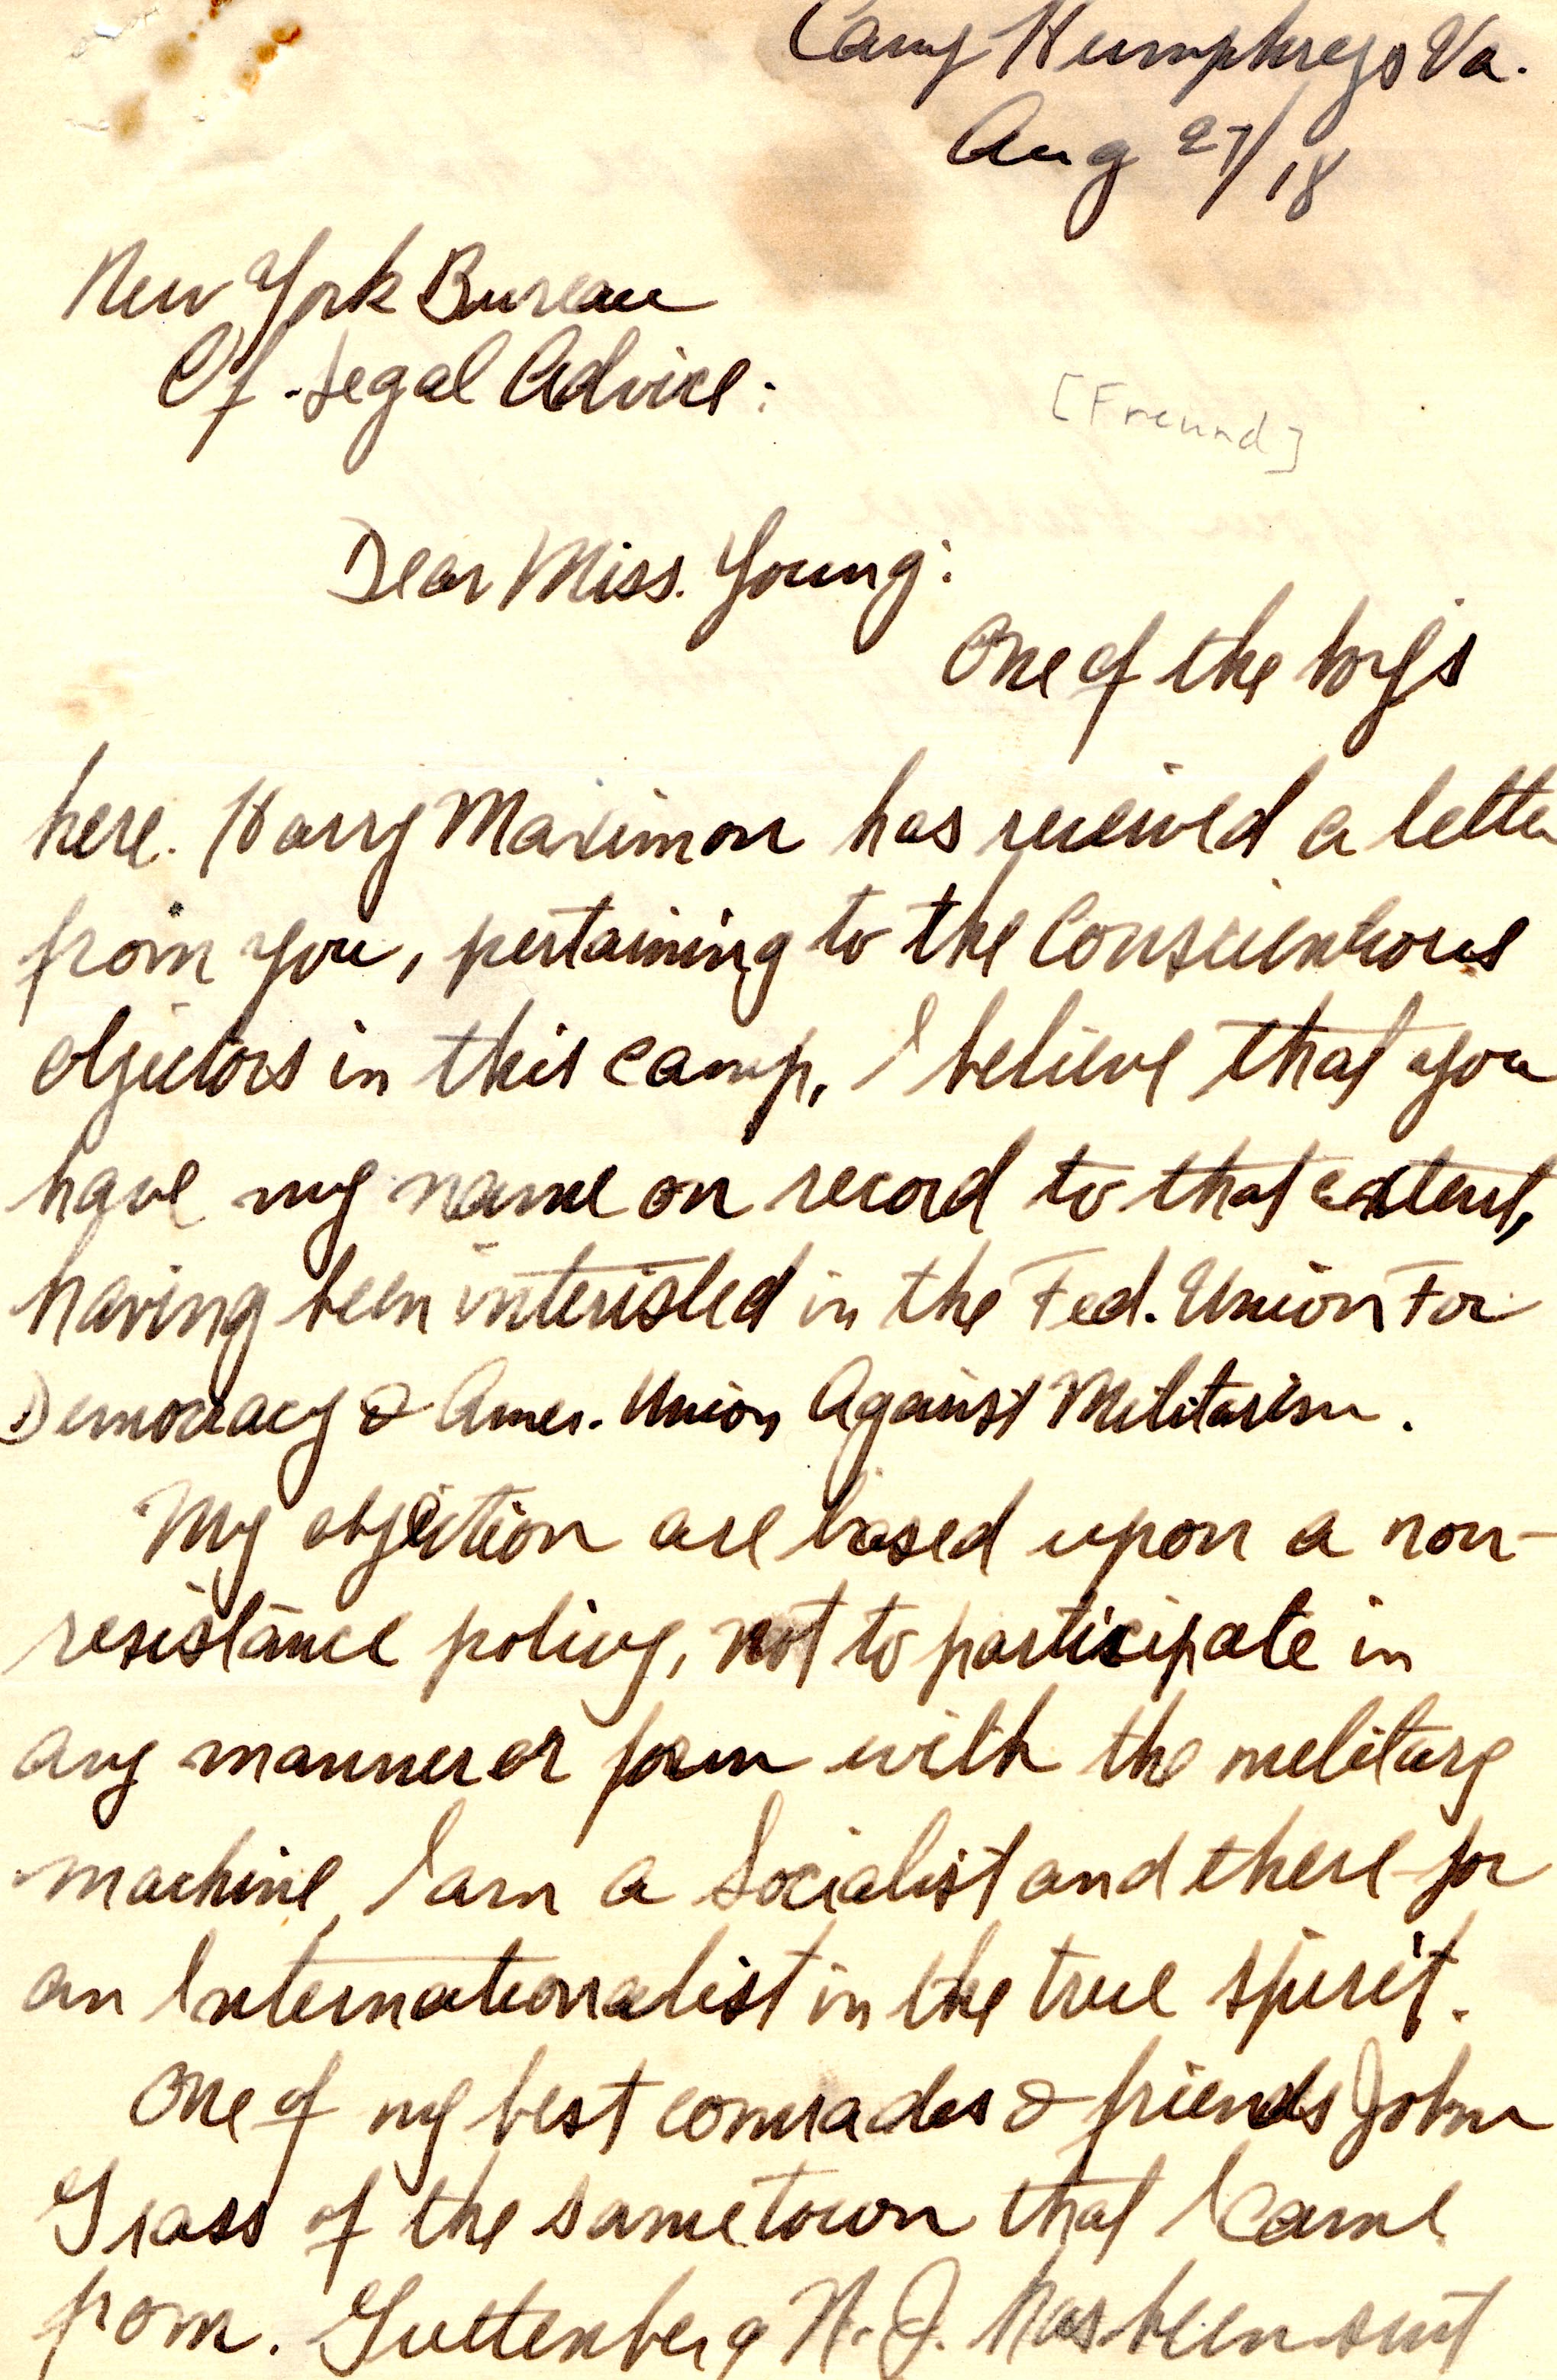 Camp Humphreys Va.
Aug 27/18
New York Bureau
Of Legal Advice:
[Freund]
Dear Miss. Young:
One of the boys
here. Harry Maximon has recieved a letter
from you, pertaining to the Conscientious
objectors in this camp, I believe that you
have my name on record to that extent,
having been interested in the Fed. Union For
Democracy & Amer. Union Against Militarism.
My objection are based upon a non-
resistance policy, not to participate in
any manner or form with the military
machine, I am a Socialist and there for
an Internationalist in the true spirit.
One of my best comrades & friends John
Grass of the same town that I came
from. Guttenberg N.J. has been sent